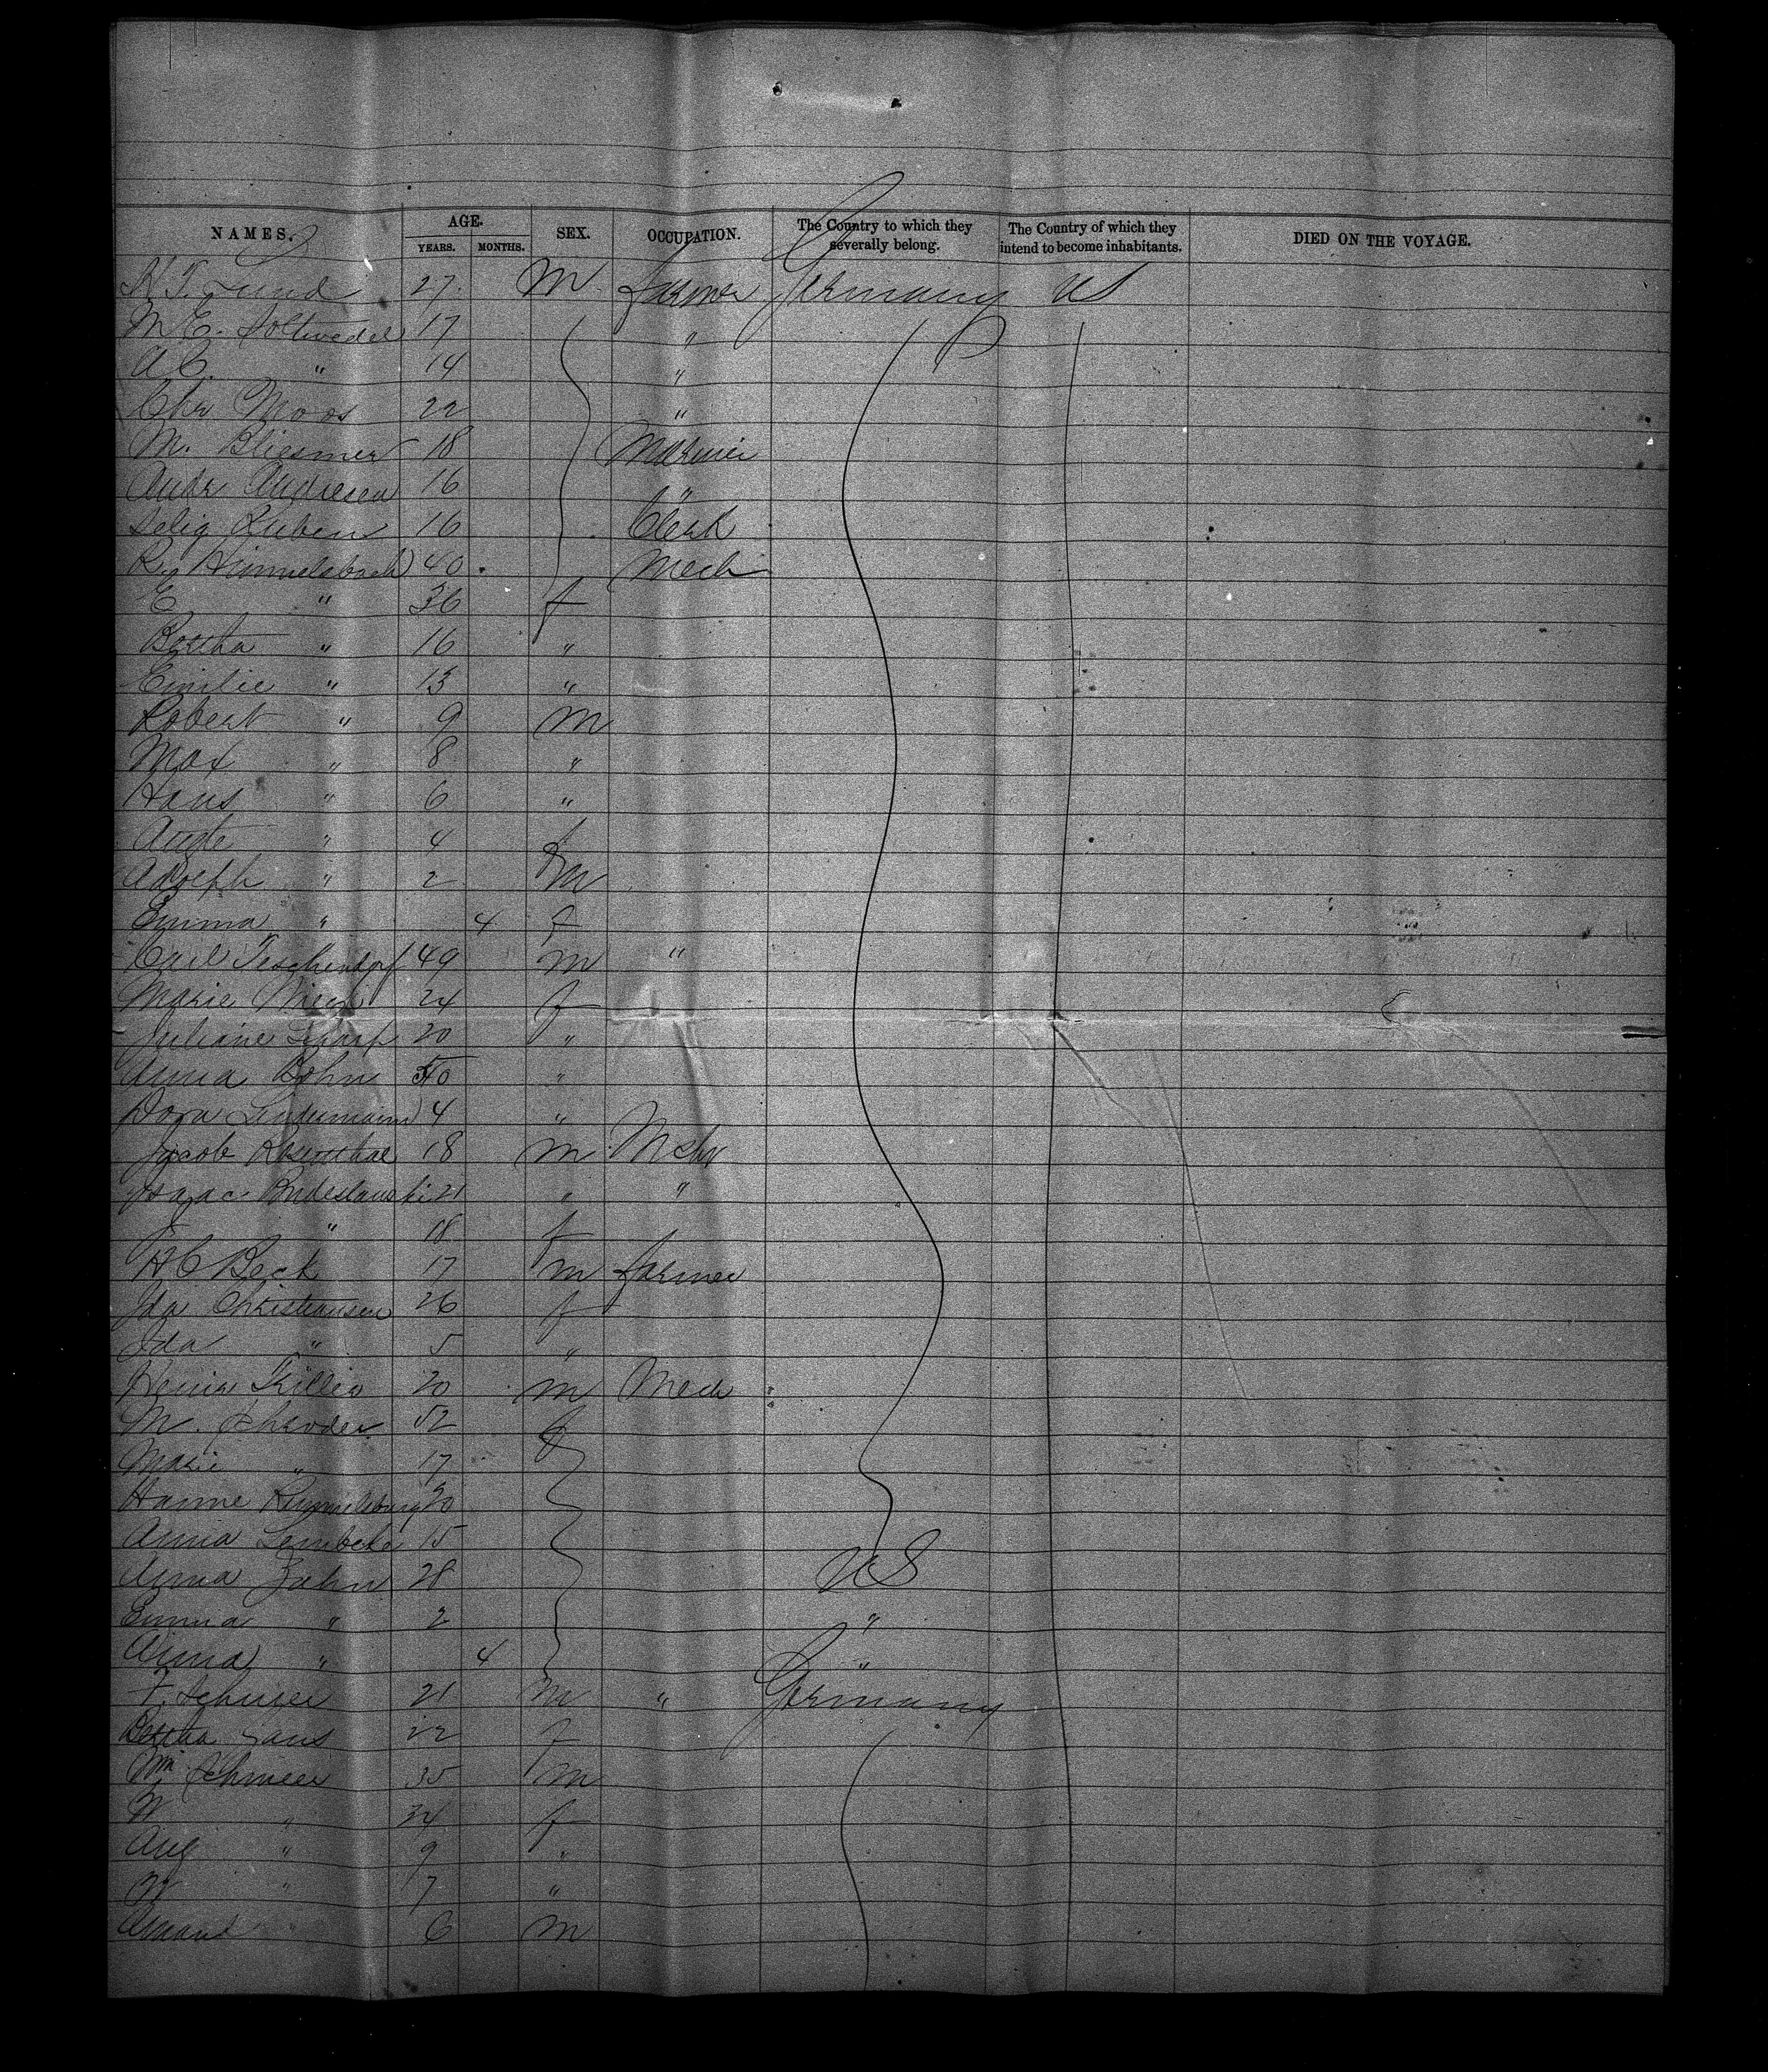 NAMES. AGE. YEARS. MONTHS. SEX. OCCUPATION. The Country to which they severally belong. The Country of which they intend to become inhabitants. DIED ON THE VOYAGE.
27. M. Farmer Germany US
M. E. Soltwedel 17 "
A C. " 14 "
Chr Moos 22 "
M. Bliesmer 18 Mariner
Andr Andresen 16 "
Selig Ruben 16 Clerk
Himmelsbach 40 Mech
E " 36 f
Bertha " 16 "
Emilie " 13 "
Robert " 9 M
Max " 8 "
Hans " 6 "
Augte " 4 f
Adolph " 2 M
Emma " 4 f
Carl Teschendorf 49 M "
Marie 24 f
Juliane 20 "
Anna Bohn "
Dora Lindemann 4 "
Jacob Rosenthal 18 M
Isaac 21 " "
" 18 f
H C Beck 17 M Farmer
Ida Christiansen 26 f
Ida " 5 "
20 M Mech
M. Schroder 52 f
Marie " 17
Hanne Rummelsburg
Anna Lembcke 15
Anna Zahn 28 US
Emma " 2 "
Anna " 4 "
F. 21 M " Germany
Bertha 22 f
Wm. 35 M
W " 34 f
Aug " 9 "
" 7 "
" 6 M